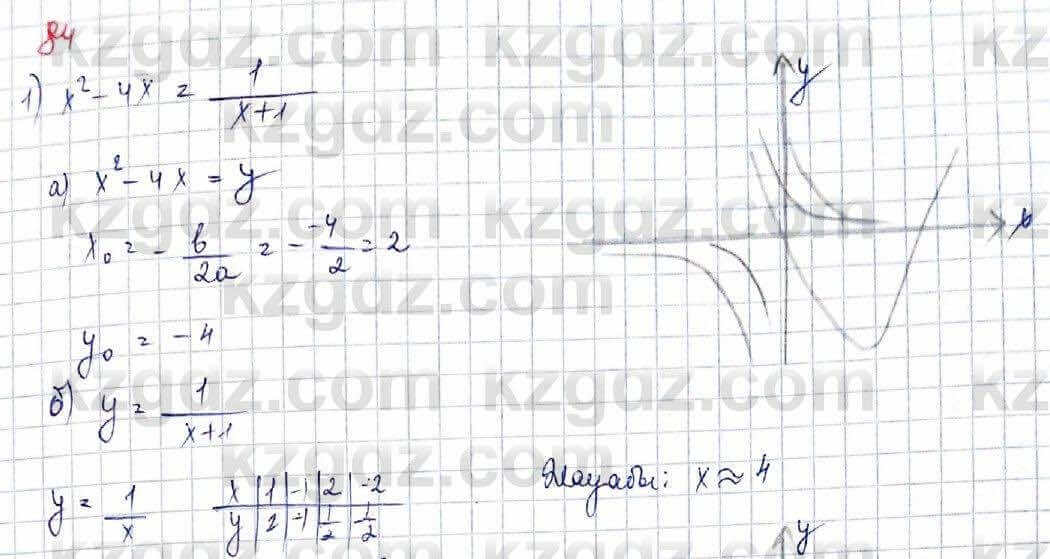 84
1) x² - 4x = 1/(x+1)
а) x² - 4x = y
x₀ = - b/2a = - -4/2 = 2
y₀ = -4
б) y = 1/(x+1)
y = 1/x
x | 1 | -1 | 2 | -2
y | 1 | -1 | 1/2 | 1/2
y
x
Жауабы: x ≈ 4
y
kzgdz.com